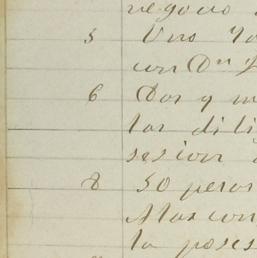 negocio
5 Uno
con Dn
6 Dos y m
las dili
sesion
8 50 pesos
Mas con
la poses